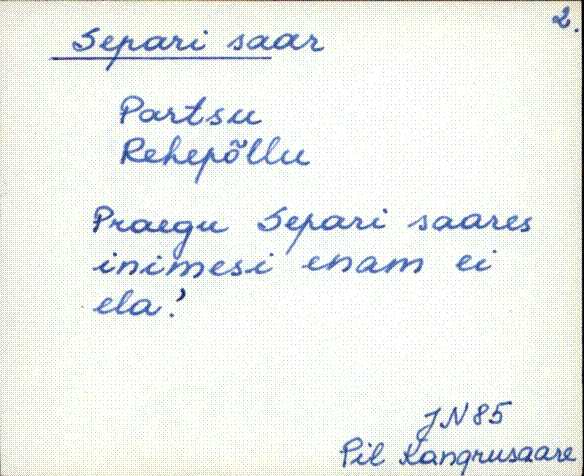 2.
Separi saar
Partsu
Rehepõllu
Praegu Separi saares
inimesi enam ei
ela?
JN 85
Pil Kangrusaare